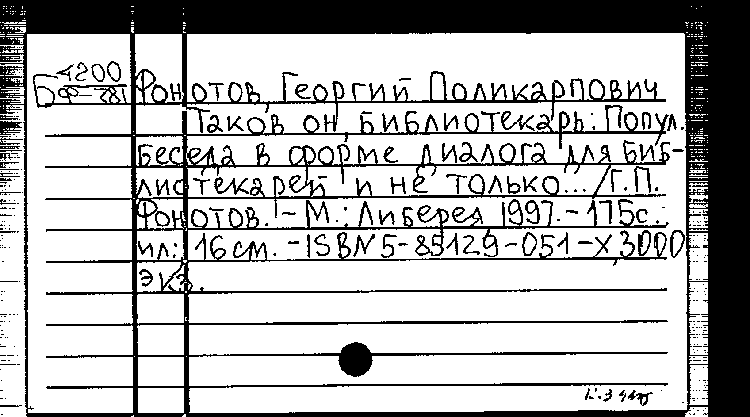 Б 4200
Ф-281
Фонотов, Георгий Поликарпович
Таков он, библиотекарь: Попул.
беседа в форме диалога для биб-
лиотекарей и не только... / Г.П.
Фонотов. - М.: Либерея, 1997. - 175с.:
ил.; 16 см. - ISBN 5-85129-051-X, 3000
экз.